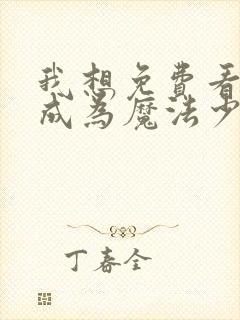 我想免费看
成为魔法少
丁春全